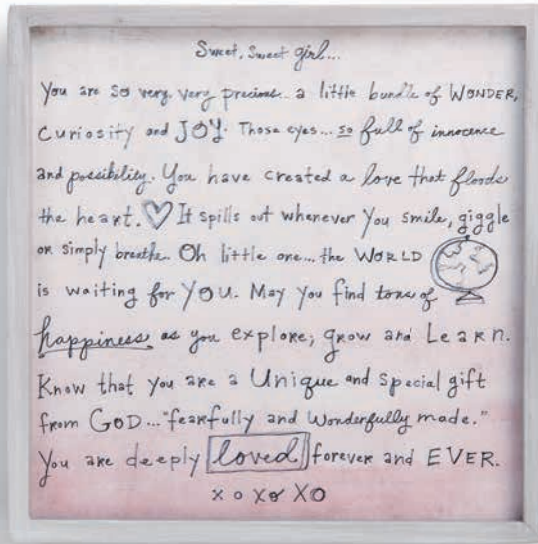 Sweet, Sweet girl...
You are so very, very precious... a little bundle of WONDER,
Curiosity and JOY. Those eyes... so full of innocence
and possibility. You have created a love that floods
the heart. It spills out whenever you smile, giggle
or simply breathe. Oh little one... the WORLD
is waiting for YOU. May you find tons of
happiness as you explore, grow and Learn.
Know that you are a Unique and special gift
from GOD... "fearfully and Wonderfully made."
You are deeply loved forever and EVER.
x o x o X O